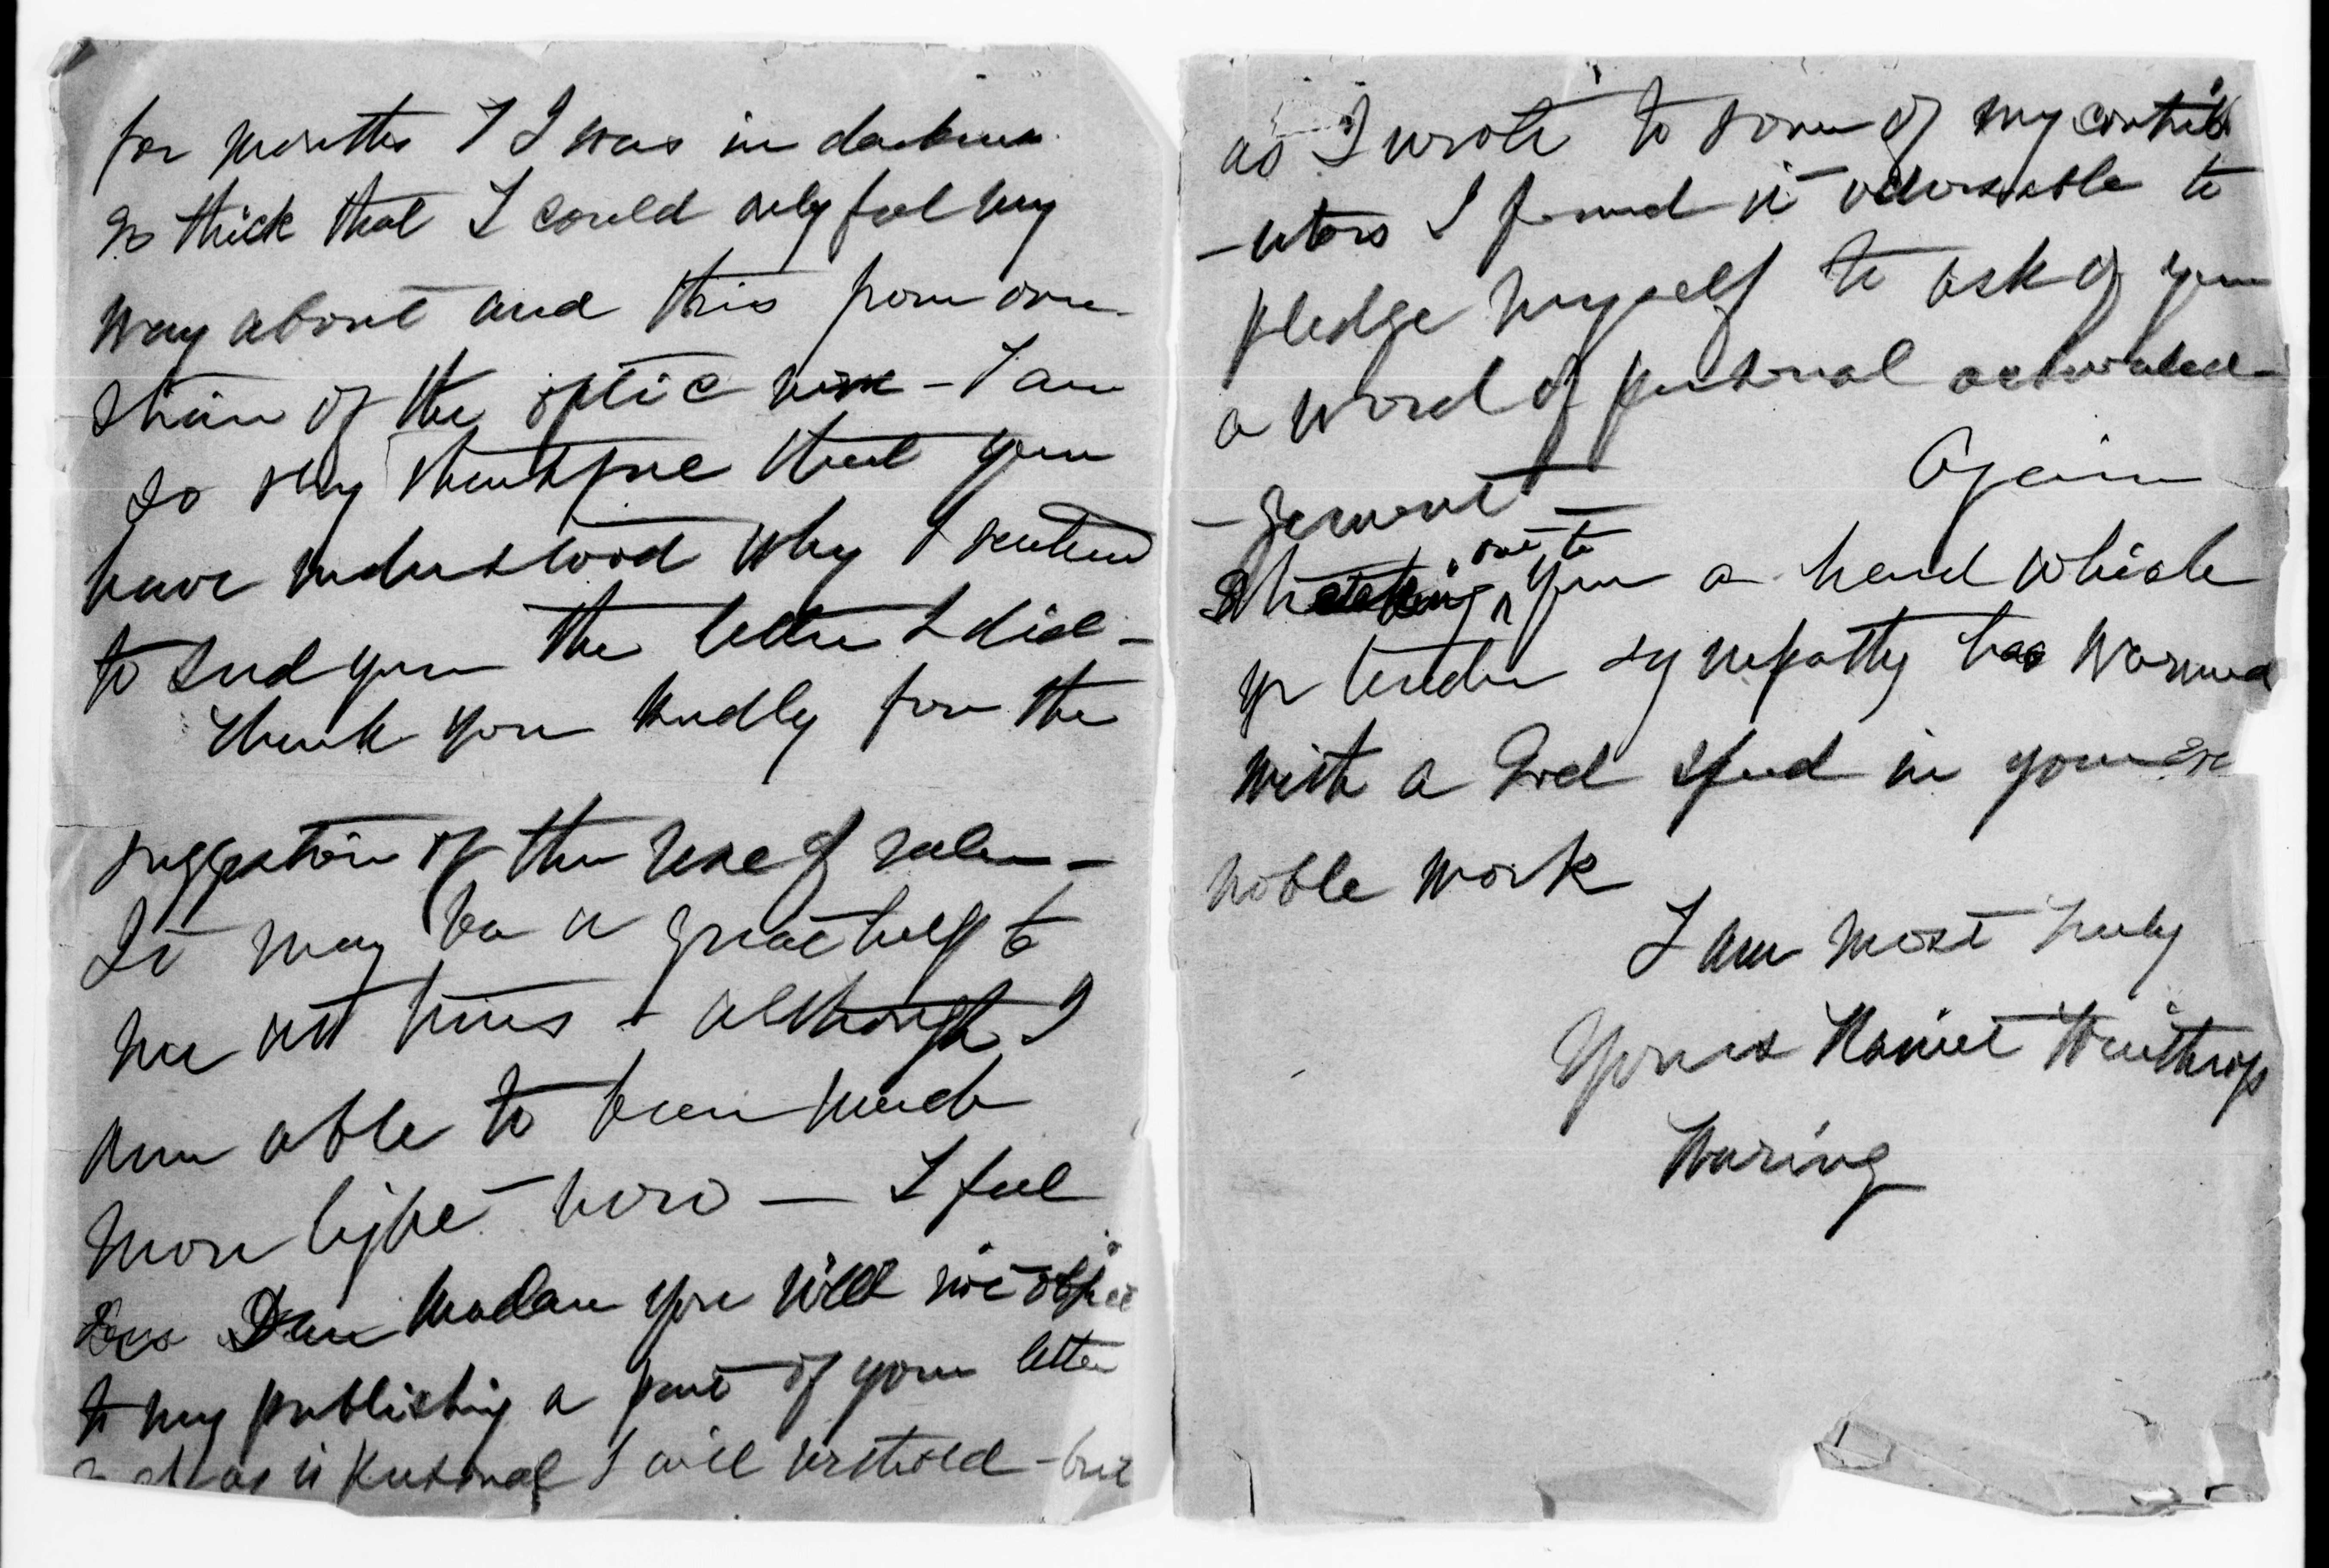 for months 7 I was in darkness
so thick that I could only feel my
way about and this from over
strain of the optic nerve - I am
so very thankful that you
have understood why I ventured
to send you the letter I did -
Thank you kindly for the
suggestion of the use of
It may be a great help to
me at times - although I
am able to bear much
more light now — I feel
Dear Madam you will not object
to my publishing a part of your letter
as is personal I will withold - but
as I wrote to some of my contrib
-utors I found it advisable to
pledge myself to ask of you
a word of personal acknowled
-gement - Again
stretching out to you a hand which
yr tender sympathy has warmed
with a God speed in your
noble work
I am most truly
Yours Harriet Winthrop
Waring